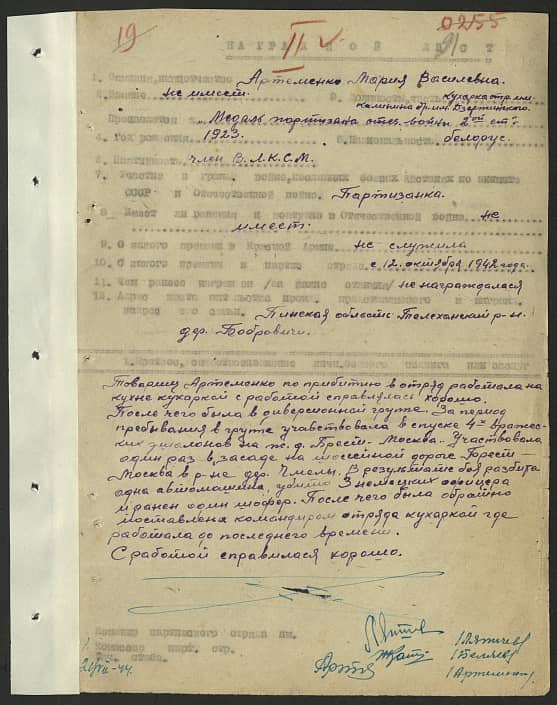 19
II
0255
91
НАГРАДНОЙ ЛИСТ
1. Фамилия, имя, отчество Артеменко Мария Василевна.
2. Звание не имеет. 3. кухарка отр. им.
Калинина бр. им. Дзержинского.
Представляется к Медаль партизана отеч. войны 2ой ст.
4. Год рождения 1923. 5. Национальность белорус.
6. Партийность член В.Л.К.С.М.
7. Участие в гражд. войне, последующих боевых действиях по защите
СССР и Отечественной войне. Партизанка.
8. Имеет ли ранения и контузии в Отечественной войне не
имеет.
9. С какого времени в Красной Армии не служила
10. С какого времени в партиз. отряде с 12. октября 1942 года.
11. Чем ранее награжден /за какие отличия/ не награждалася
12. Адрес
Пинская область Телеханский р-н.
дер. Бобровичи.
1. Краткое,
Товарищ Артеменко по прибитию в отряд работала на
кухне кухаркой с работой справлялась хорошо.
После чего была в диверсионной группе. За период
пребывания в групе учавствовала в спуске 4х вражес-
ких эшалонов на ж.д. Брест-Москва. Участвовала
один раз в засаде на шоссейной дороге Брест-
Москва в р-не дер. Чмелы. В результате боя разбита
одна автомашина, убито 3 немецких офицера
и ранен один шофер. После чего была обратно
поставлена командиром отряда кухаркой где
работала до последнего времени.
С работой справилася хорошо.
Командир партизанского отряда им.
Комиссар парт. отр.
Нач. штаба.
/Беляев/
/Артеменко/